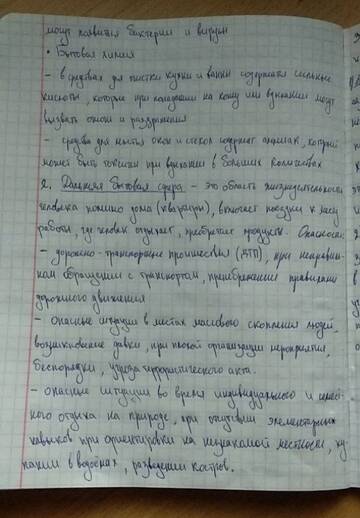 могут появится бактерии и вирусы
• Бытовая химия
- в средствах для чистки кухни и ванны содержатся сильные
кислоты, которые при попадании на кожу или вдыхании могут
вызвать ожоги и раздражения
- средства для мытья окон и стекол содержат аммиак, который
может быть токсичен при вдыхании в больших количествах
2. Дальняя бытовая сфера - это область жизнедеятельности
человека помимо дома (квартиры), включает поездки к месту
работы, где человек отдыхает, приобретает продукты. Опасности:
- дорожно-транспортные происшествия (ДТП), при неправиль-
ном обращении с транспортом, пренебрежение правилами
дорожного движения
- опасные ситуации в местах массового скопления людей,
возникновение давки, при плохой организации мероприятия,
беспорядки, угроза террористического акта.
- опасные ситуации во время индивидуального и
ного отдыха на природе, при отсутствии элементарных
навыков при ориентировки на незнакомой местности, ку-
пании в водоёмах, разведении костров.